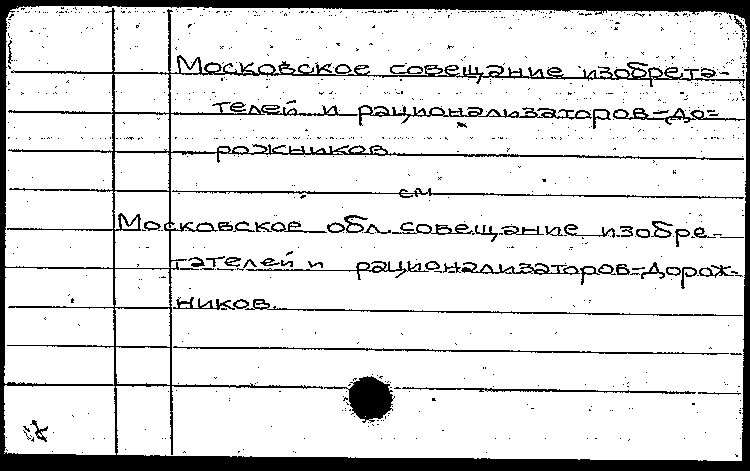 Московское совещание изобрета-
телей и рационализаторов-до-
рожников
см
Московское обл. совещание изобре-
тателей и рационализаторов-дорож-
ников.